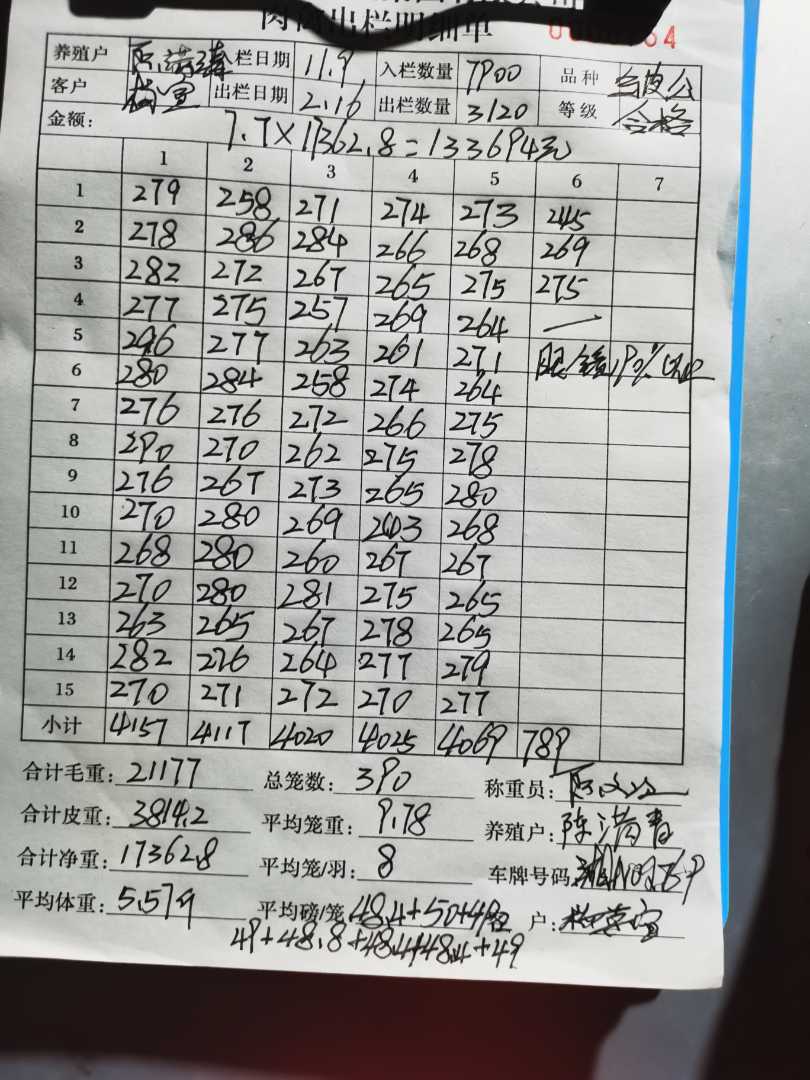 出栏明细单
养殖户 入栏日期 11.9 入栏数量 7900 品种
客户 出栏日期 2.16 出栏数量 3120 等级 合格
金额: 7.7×17362.8=133694元
1 2 3 4 5 6 7
1 279 258 271 274 273 245
2 278 286 284 266 268 269
3 282 272 267 265 275 275
4 277 275 257 269 264 一
5 296 277 263 261 271
6 280 284 258 274 264
7 276 276 272 266 275
8 290 270 262 275 278
9 276 267 273 265 280
10 270 280 269 268
11 268 280 260 267 267
12 270 280 281 275 265
13 263 265 267 278 265
14 282 276 264 277 279
15 270 271 272 270 277
小计 4157 4117 4020 4025 4069 789
合计毛重: 21177 总笼数: 390 称重员:
合计皮重: 3814.2 平均笼重: 9.78 养殖户: 陈满青
合计净重: 17362.8 平均笼/羽: 8 车牌号码:
平均体重: 5.579 平均磅/笼 48.4+50+49 户:
49+48.8+48.4+48.4+49